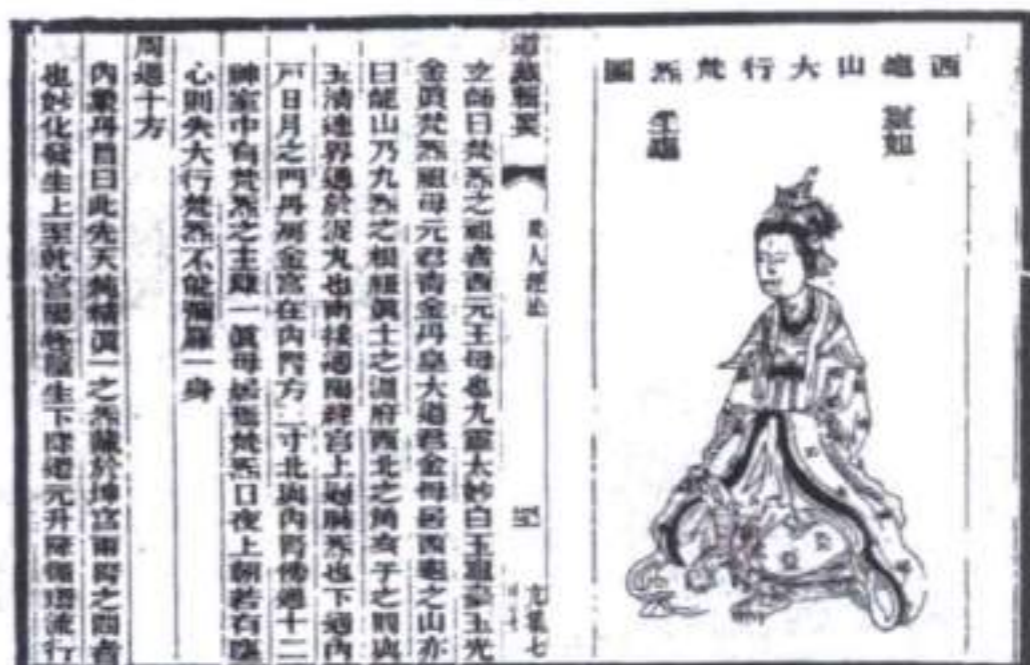 西龜山大行梵炁圖
道藏輯要
立師曰梵炁之祖者西元王母也九靈太妙白玉龜臺玉光
金眞梵炁祖母元君靑金丹皇大道君金母居西龜之山亦
曰龍山乃九炁之根紐眞土之淵府西北之角亥子之間
玉淸連界通於泥丸也南接通陽經宮上通腦炁也下通內
戸日月之門丹房金宮在內腎方二寸北與內腎傍通十二
神室中有梵炁之主雌一眞母居焉梵炁日夜上朝若有塵
心則失大行梵炁不能彌羅一身
周迴十方
內象丹旨曰此先天純精眞一之炁藏於坤宮兩腎之間者
也妙化發生上至乾宮陽生下降還元升降循環流行